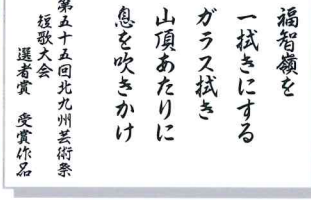 福智嶺を
一拭きにする
ガラス拭き
山頂あたりに
息を吹きかけ
第五十五回北九州芸術祭
短歌大会
選者賞 受賞作品